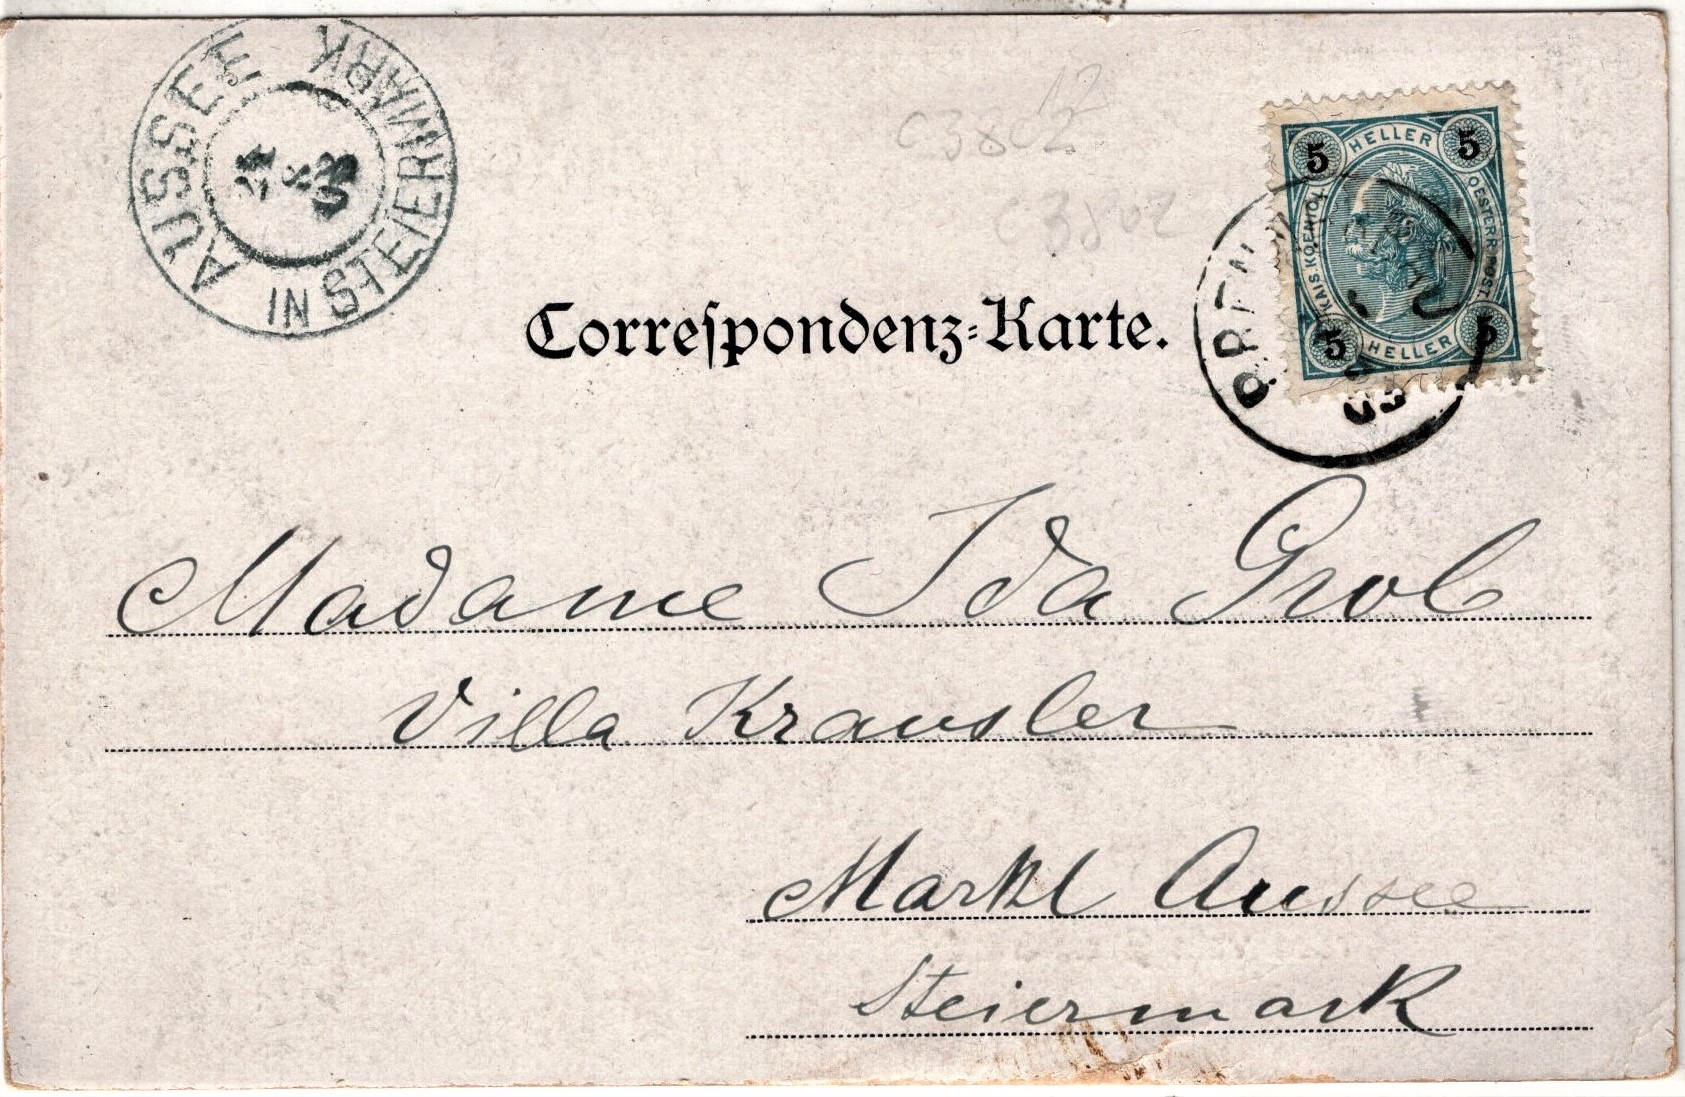 AUSSEE IN STEIERMARK
C3802
C3802
5 HELLER 5
KAIS. KOENIGL. OESTERR. POST.
5 HELLER 5
Correſpondenz-Karte.
Madame Ida Grob
Villa Kransler
Markt Aussee
Steiermark